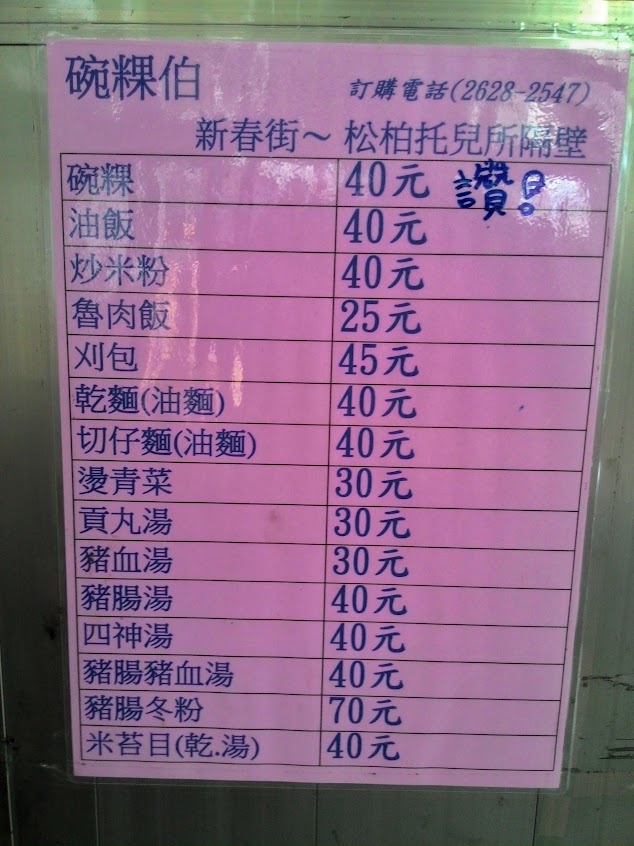 碗粿伯
訂購電話(2628-2547)
新春街～ 松柏托兒所隔壁
碗粿 40元 讚!
油飯 40元
炒米粉 40元
魯肉飯 25元
刈包 45元
乾麵(油麵) 40元
切仔麵(油麵) 40元
燙青菜 30元
貢丸湯 30元
豬血湯 30元
豬腸湯 40元
四神湯 40元
豬腸豬血湯 40元
豬腸冬粉 70元
米苔目(乾.湯) 40元